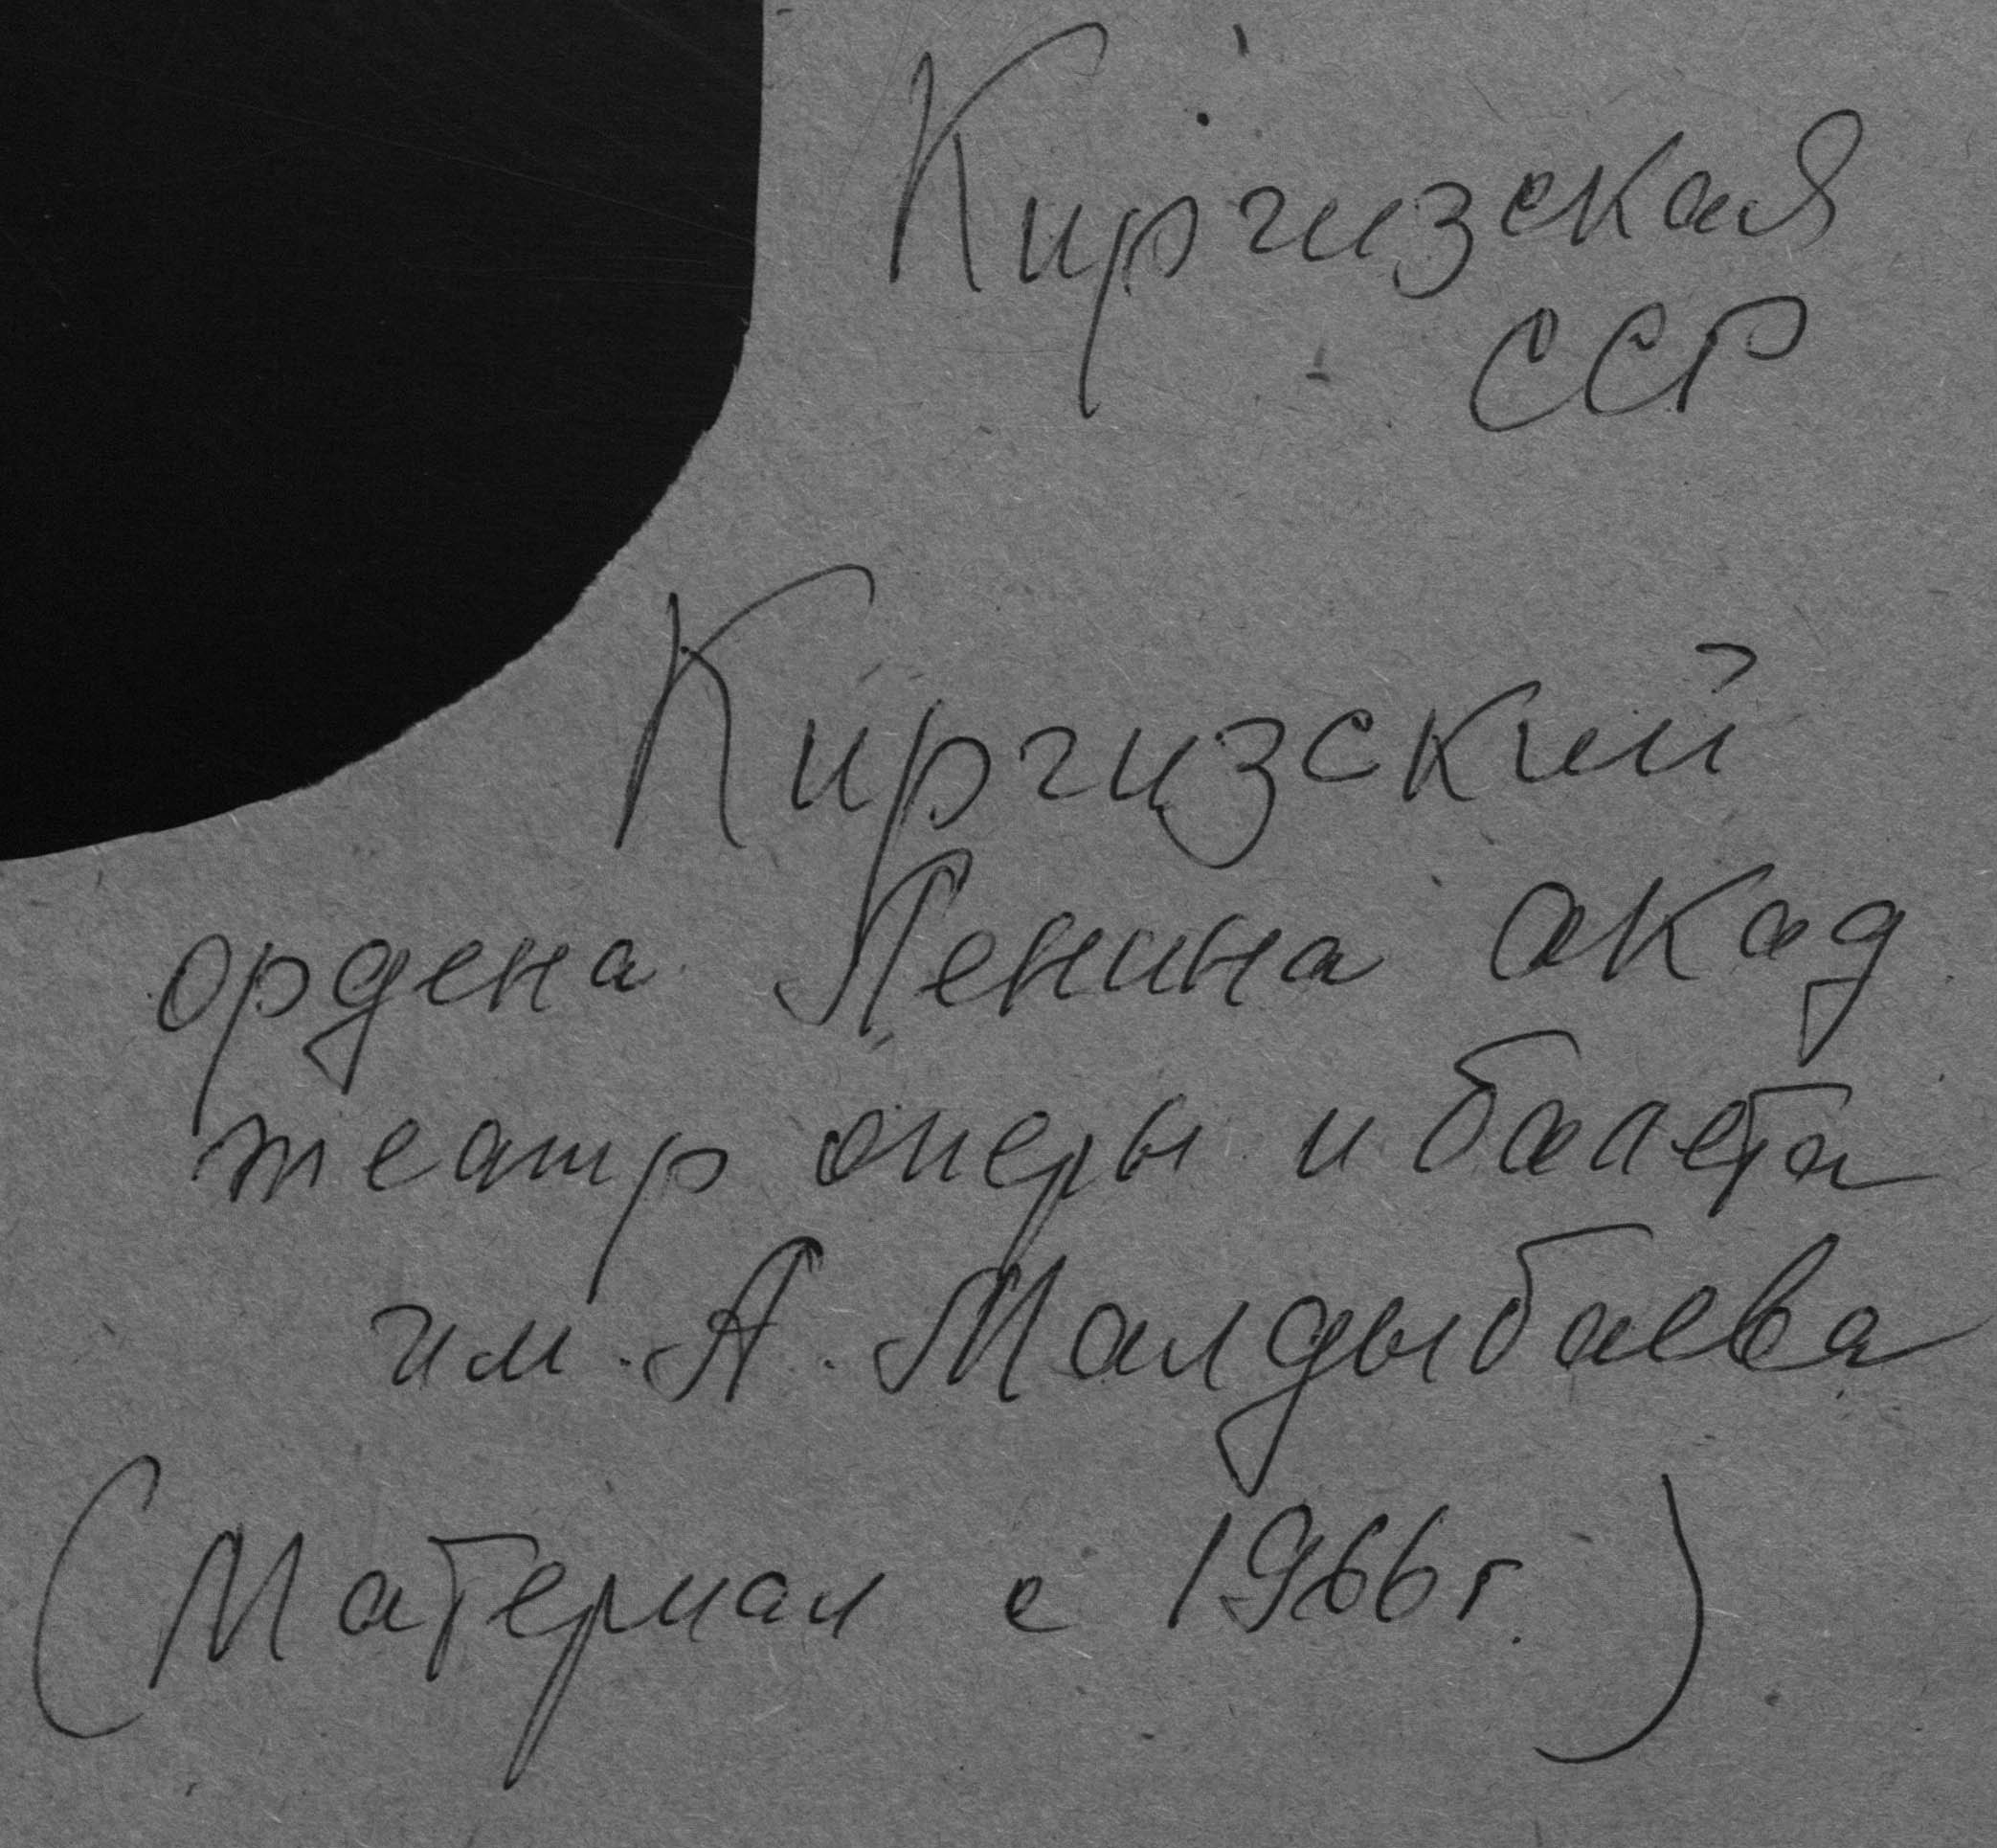 Киргизская
ССР
Киргизский
ордена Ленина акад
театр оперы и балета
им. А. Малдыбаева
(Материал с 1966 г.)